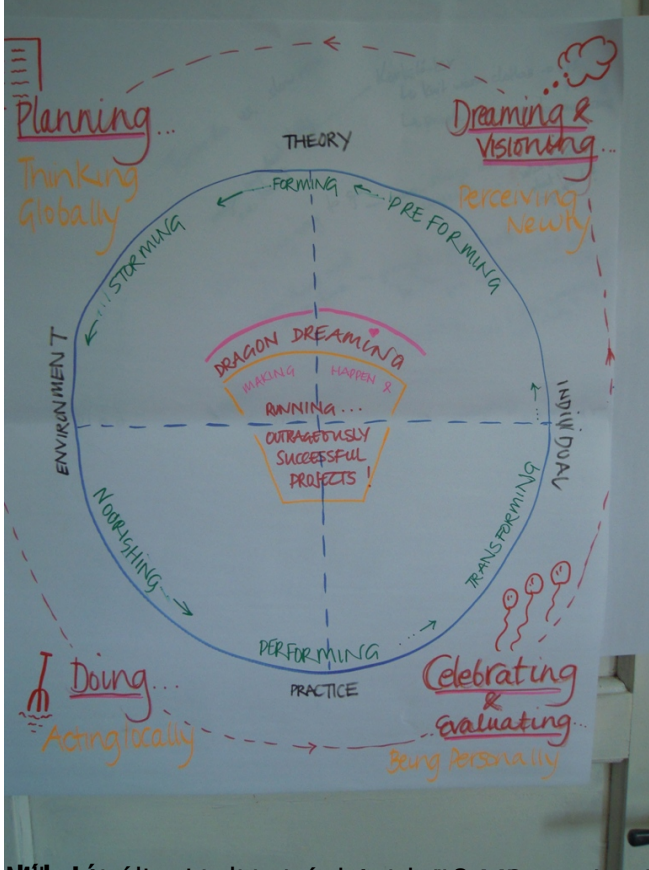 Planning...
Thinking
Globally
Dreaming &
Visioning...
Perceiving
Newly
THEORY
FORMING
PREFORMING
STORMING
ENVIRONMENT
INDIVIDUAL
DRAGON DREAMING
MAKING HAPPEN &
RUNNING...
OUTRAGEOUSLY
SUCCESSFUL
PROJECTS!
NOURISHING
TRANSFORMING
PERFORMING
PRACTICE
Doing...
Acting locally
Celebrating
&
Evaluating...
Being Personally